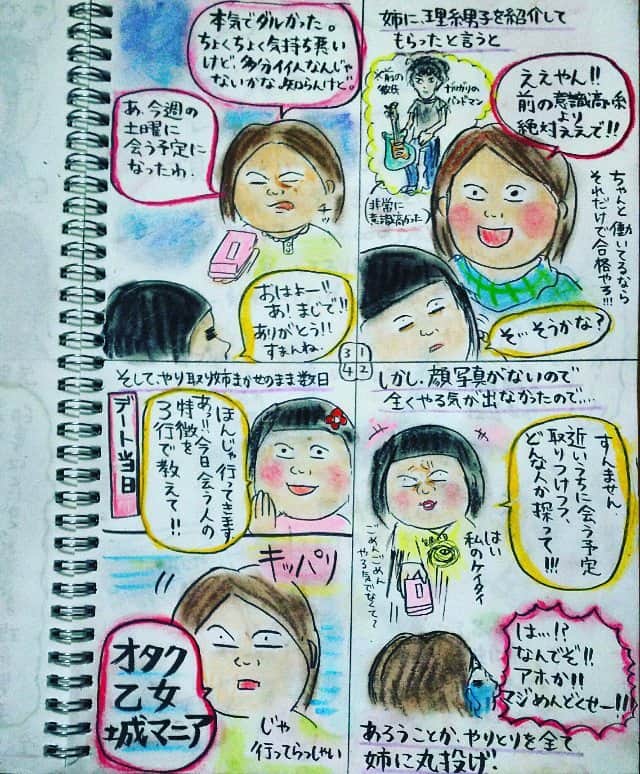 姉に、理系男子を紹介して
もらったと言うと
ええやん!!
前の意識高い系
より
絶対ええで!!
※前の
彼氏
バンドマン
(非常に
意識高かった)
ちゃんと働いてるなら
それだけで合格やろ!!!
そ…そうかな?
しかし、顔写真がないので
全くやる気が出なかったので…
すんません
近いうちに会う予定
取りつけつつ、
どんな人か探って!!!
はい
私のケイタイ
ごめんごめん
やる気でなくて?
は…!?
なんでぞ!!
アホか!!
マジめんどくせー!!!
あろうことか、やりとりを全て
姉に丸投げ.
本気でダルかった。
ちょくちょく気持ち悪い
けど、多分イイ人なんじゃ
ないかな、知らんけど。
あ、今週の
土曜に
会う予定に
なったわ.
チッ
おはよー!!
あ!まじで!!
ありがとう!!
すまんね.
3 1
4 2
そして、やり取り姉まかせのまま数日
デート当日
ほんじゃ行ってきます
あっ!!今日会う人の
特徴を
3行で教えて!!
キッパリ
オタク
乙女
城マニア
じゃ
行ってらっしゃい